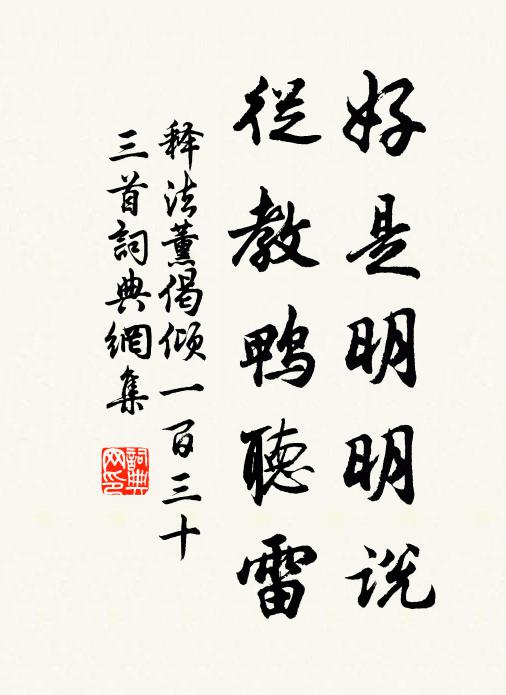 好是明明说
從教鴨聽雷
释法薰偈倾一百三十
三首詞典網集
詞典网印